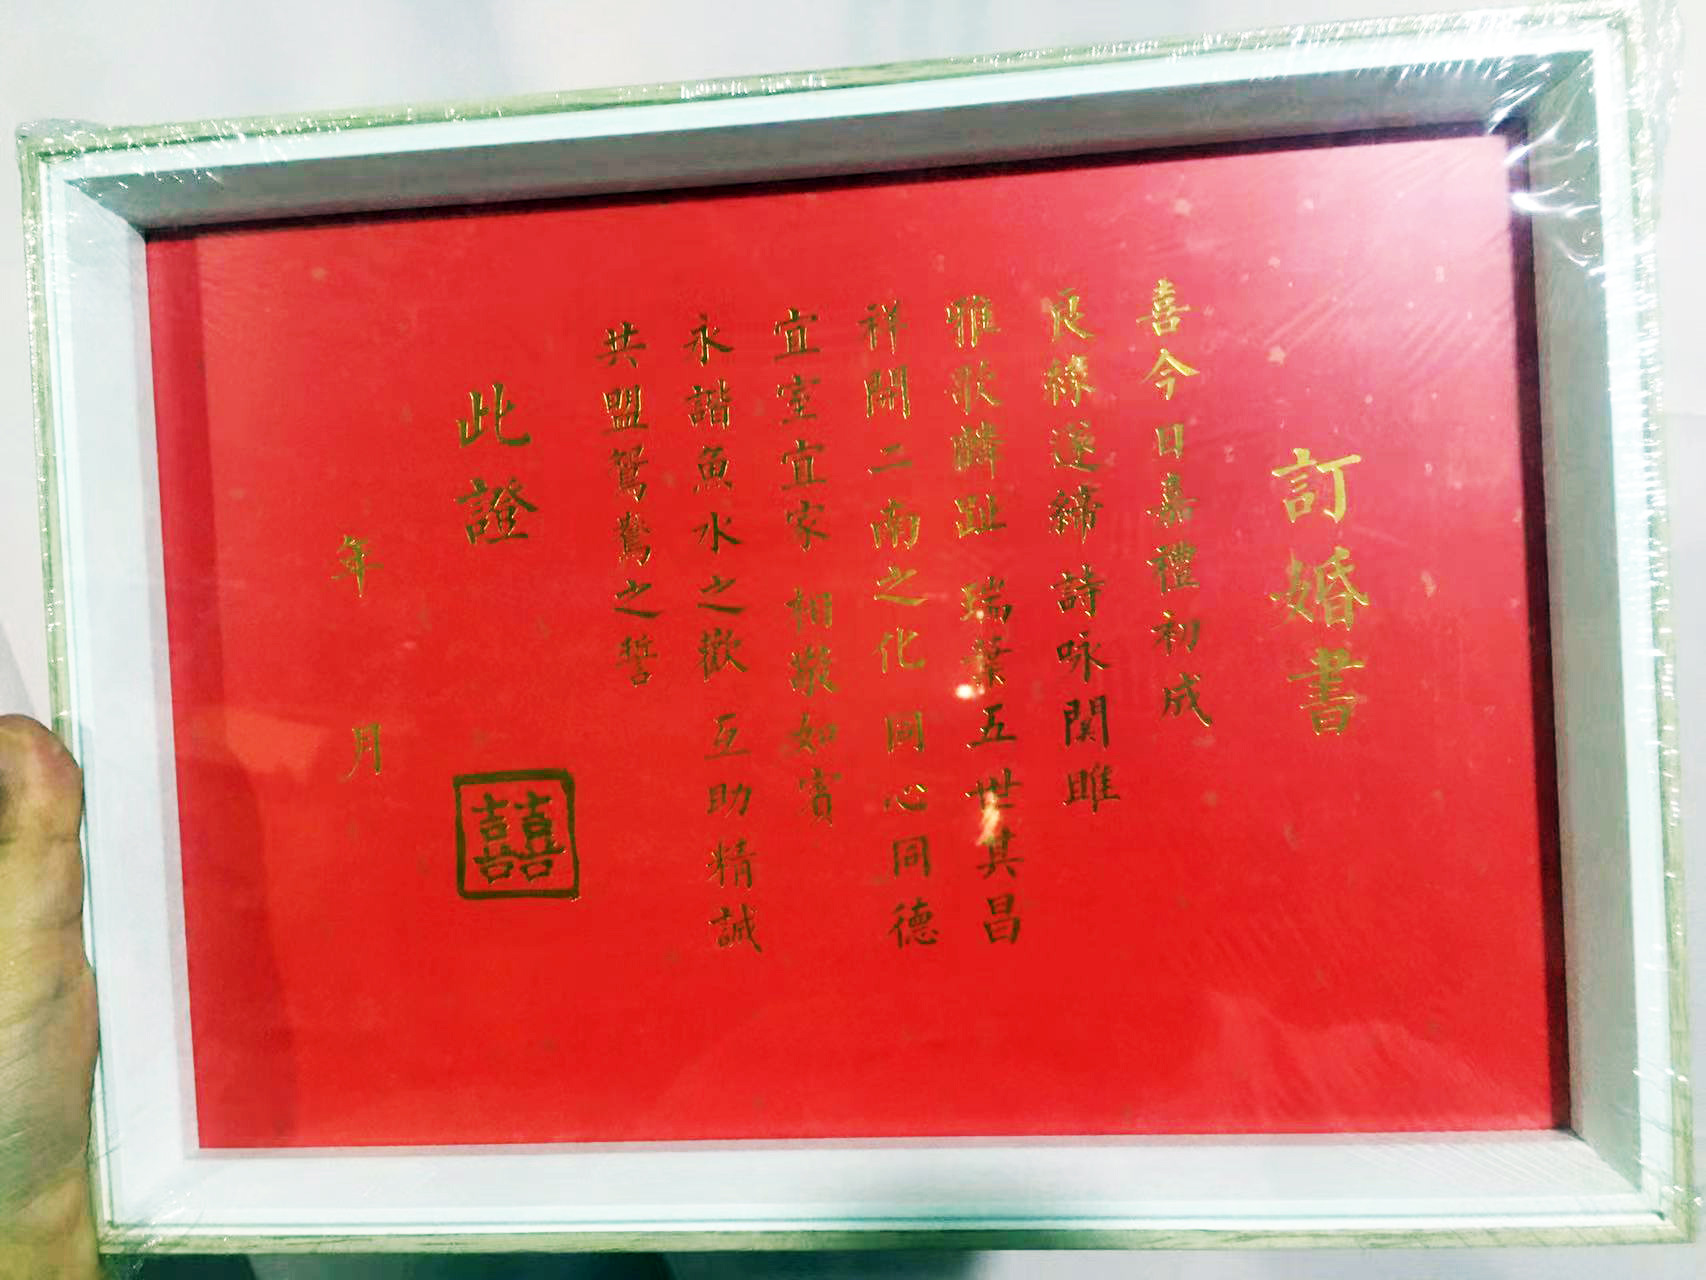 訂婚書
喜今日嘉禮初成
良緣遂締 詩咏関雎
雅歌麟趾 瑞葉五世其昌
祥開二南之化 同心同德
宜室宜家 相敬如賓
永諧魚水之歡 互助精誠
共盟鴛鴦之誓
此證
年 月
囍